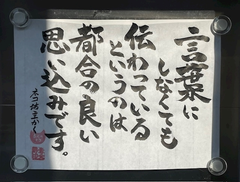 言葉に
しなくても
伝わっている
というのは
都合の良い
思い込みです。